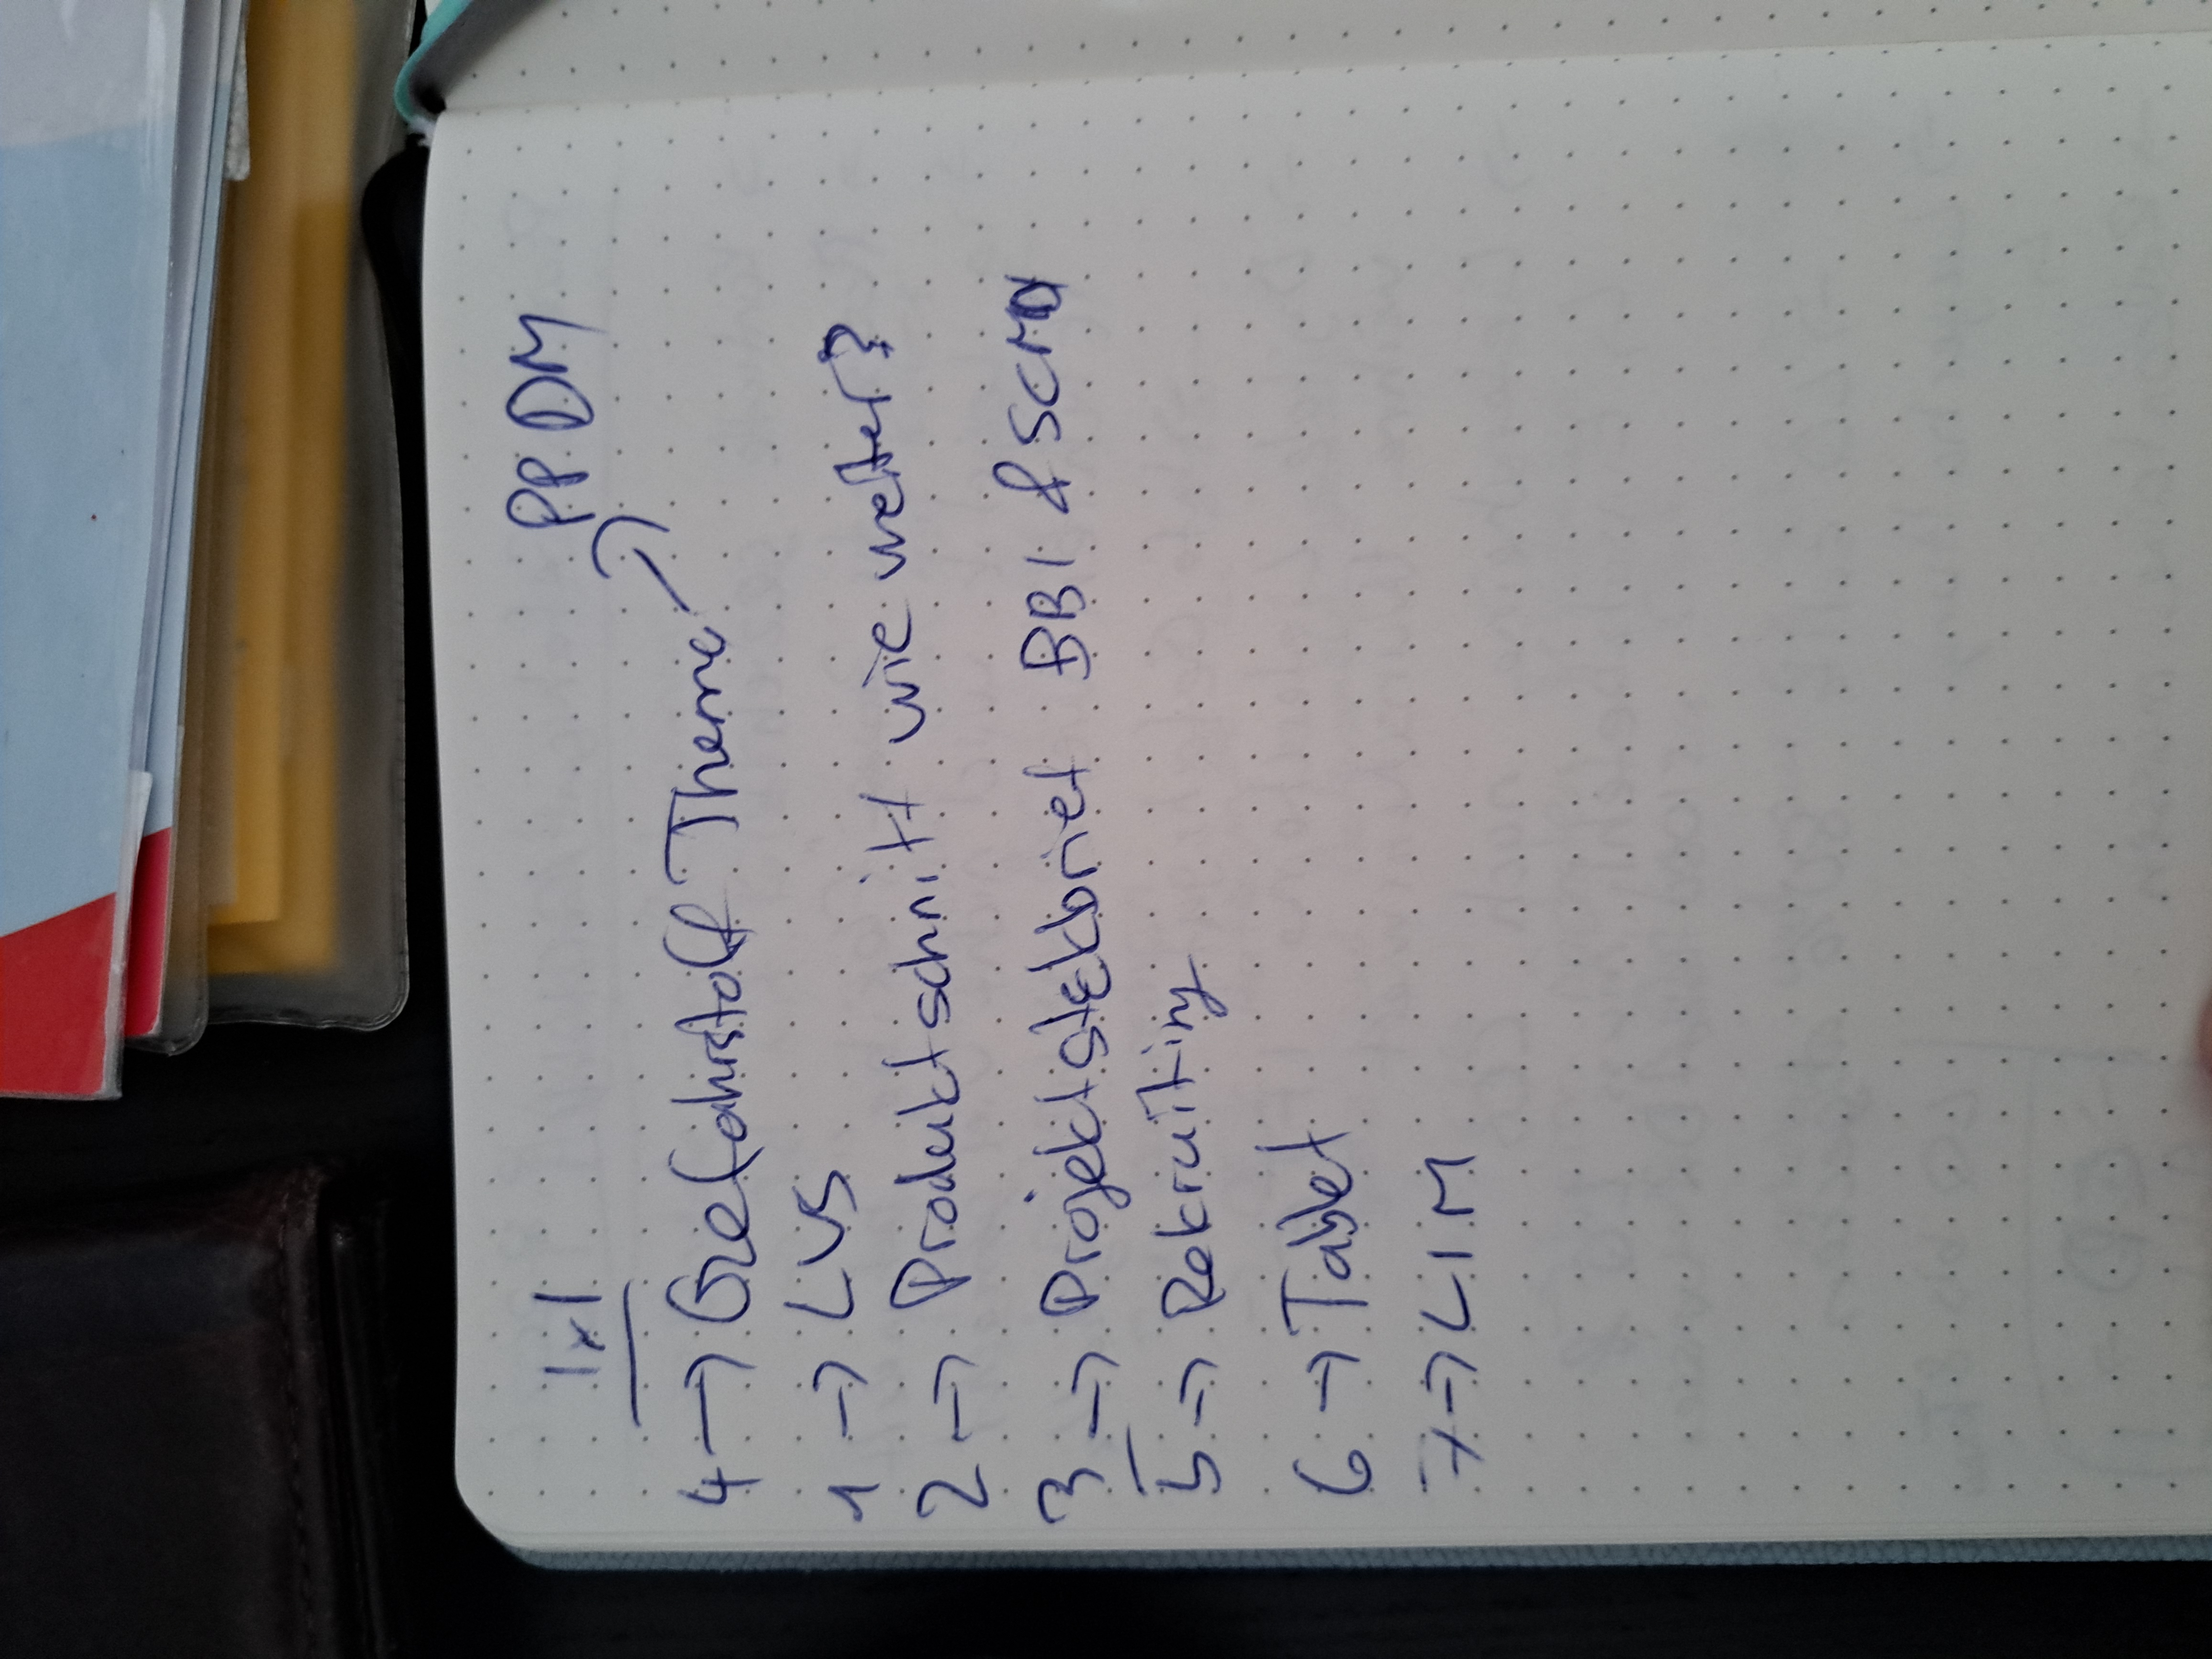 1x1
PPDM
4 → Gefahrstoff Thema
1 → LVS
2 → Produktschnitt wie weiter?
3 → Projektstekbrief BBI & SCM
5 → Rekruiting
6 → Tablet
7 → LIM